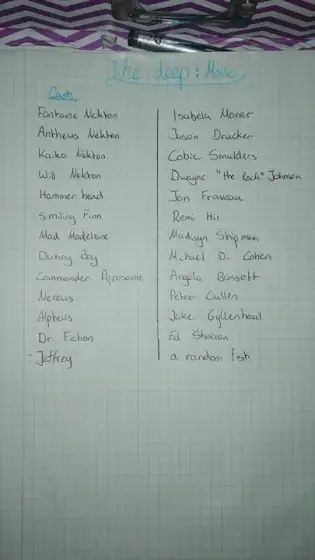 The deep : Movie
Cast
Fontaine Nekton Isabela Moner
Antheus Nekton Jason Drucker
Kaiko Nekton Cobie Smulders
Will Nekton Dwayne "the Rock" Johnson
Hammerhead Jon Fraveau
Smiling Finn Remi Hii
Mad Madeleine Madisyn Shipman
Danny Boy Michael D. Cohen
Commander Pyrosome Angela Bassett
Nereus Peter Cullen
Alpheus Jake Gyllenhaal
Dr. Fiction Ed Sheeran
- Jeffrey a random fish